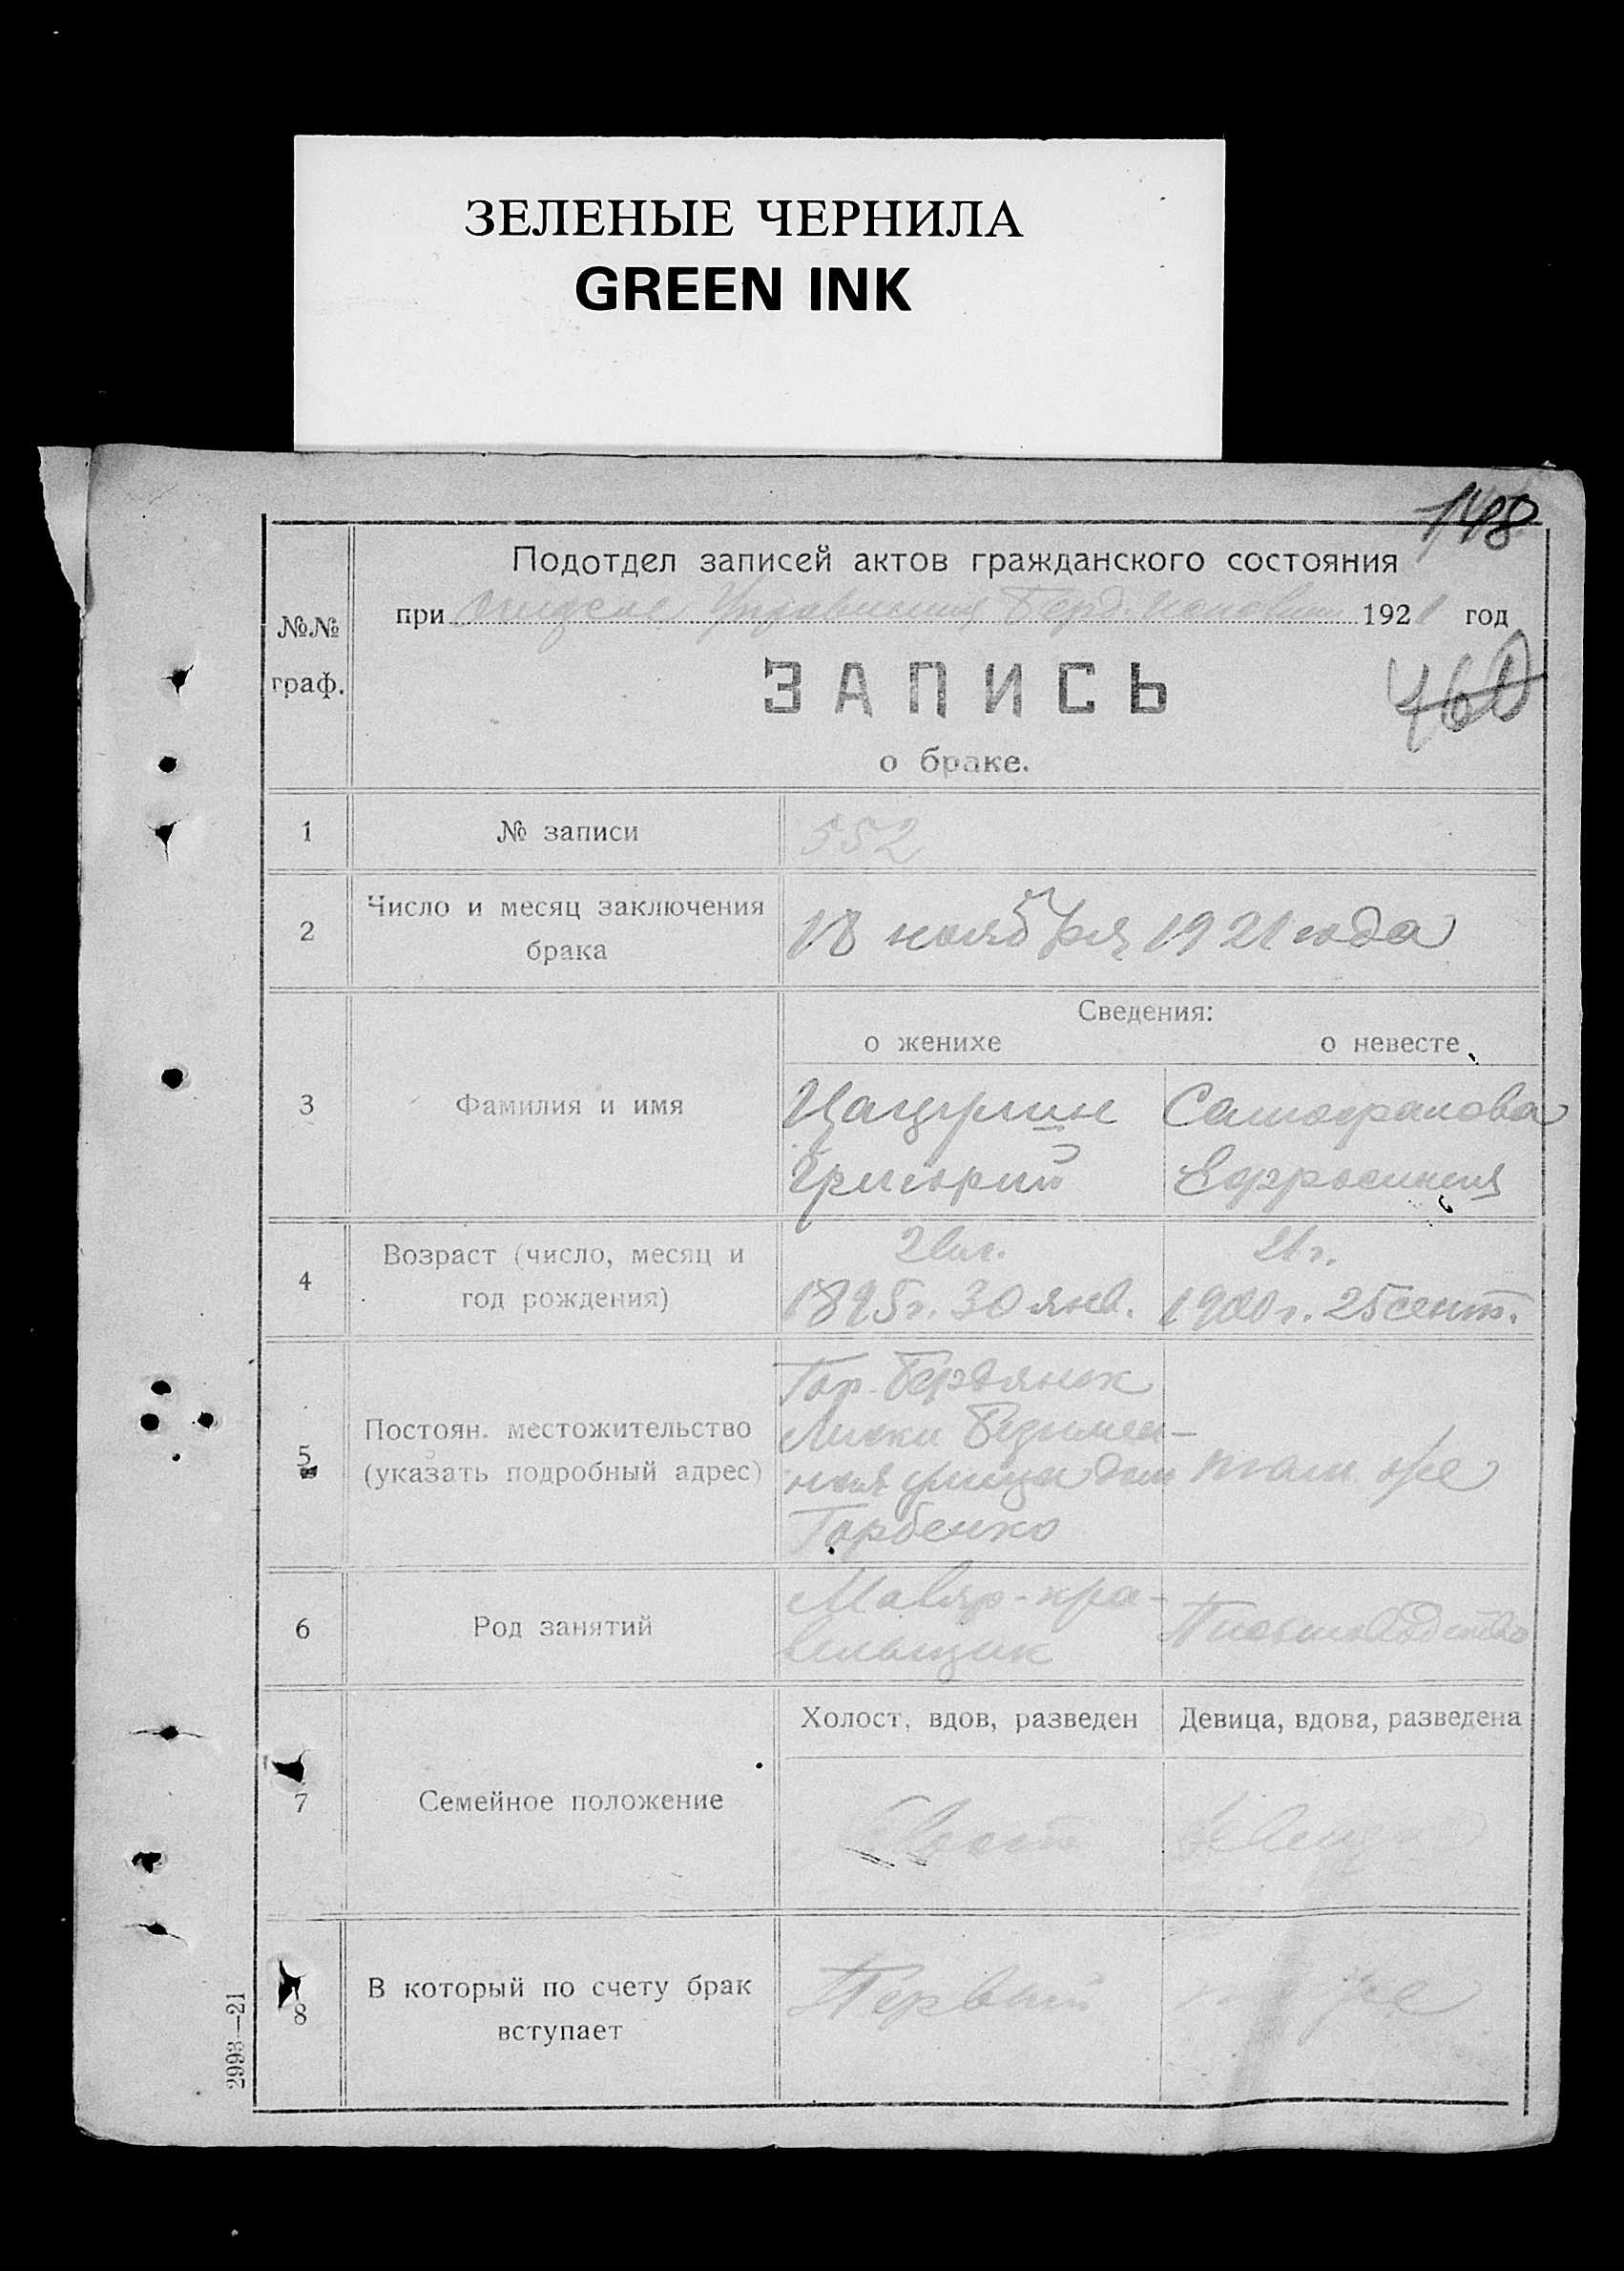 ЗЕЛЕНЫЕ ЧЕРНИЛА
GREEN INK
148
Подотдел записей актов гражданского состояния
при Отделе Управления Берд. 1921 год
№№ граф.
ЗАПИСЬ
460
о браке.
1 № записи 552
2 Число и месяц заключения брака 18 ноября 1921 года
Сведения:
о женихе о невесте
3 Фамилия и имя
Григорий Ефросиния
4 Возраст (число, месяц и год рождения)
26 л. 21 г.
1895 г. 30 янв. 1900 г. 25 сент.
5 Постоян. местожительство (указать подробный адрес)
Гор. Бердянск
Лиски Безымен-
ная улица дом там же
Горбенко
6 Род занятий
Маляр-кра-
сильщик Письмоводство
Холост, вдов, разведен Девица, вдова, разведена
7 Семейное положение
Холост Девица
8 В который по счету брак вступает
Первый то же
2993—21